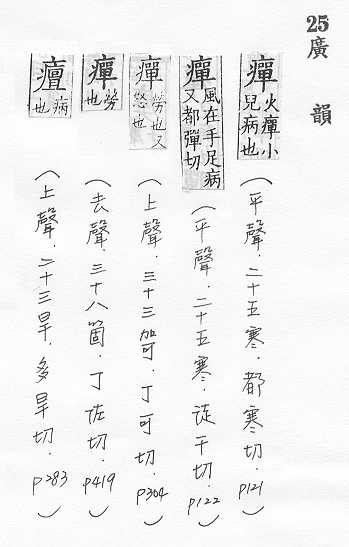 25廣韻
癉火癉小兒病也
(平聲．二十五寒．都寒切．P121)
癉風在手足病又都彈切
(平聲．二十五寒．徒干切．P122)
癉勞也又怒也
(上聲．三十三哿．丁可切．P304)
癉勞也
(去聲．三十八箇．丁佐切．P419)
癉病也
(上聲．二十三旱．多旱切．P283)